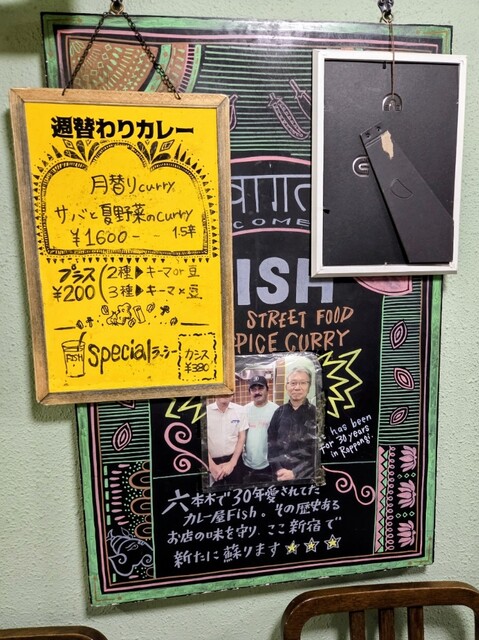 週替わりカレー
月替りcurry
サバと夏野菜のcurry
¥1600-- 1.5辛
プラス ¥200
2種▶キーマor豆
3種▶キーマ×豆
FISH
specialラッシー
カシス
¥380
COME
ISH
STREET FOOD
PICE CURRY
has been
for 30 years
in Roppongi.
六本木で30年愛されてた
カレー屋Fish。その歴史ある
お店の味を守り、ここ新宿で
新たに蘇ります★★★